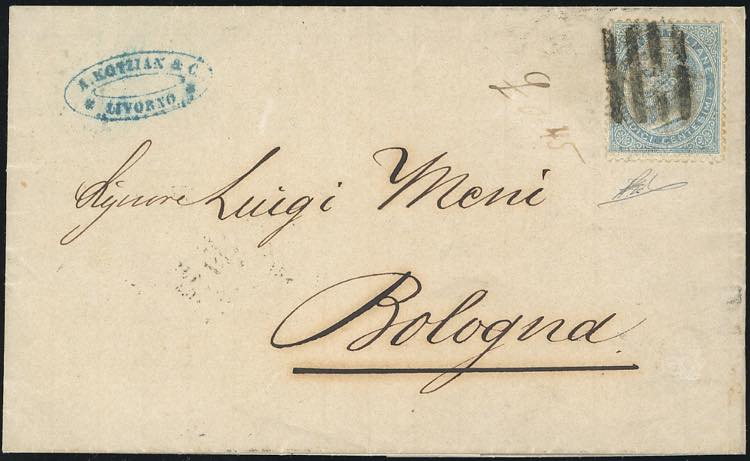 A. KOTZIAN & C.
LIVORNO
Signore Luigi Meni
Bologna
CENTESIMI